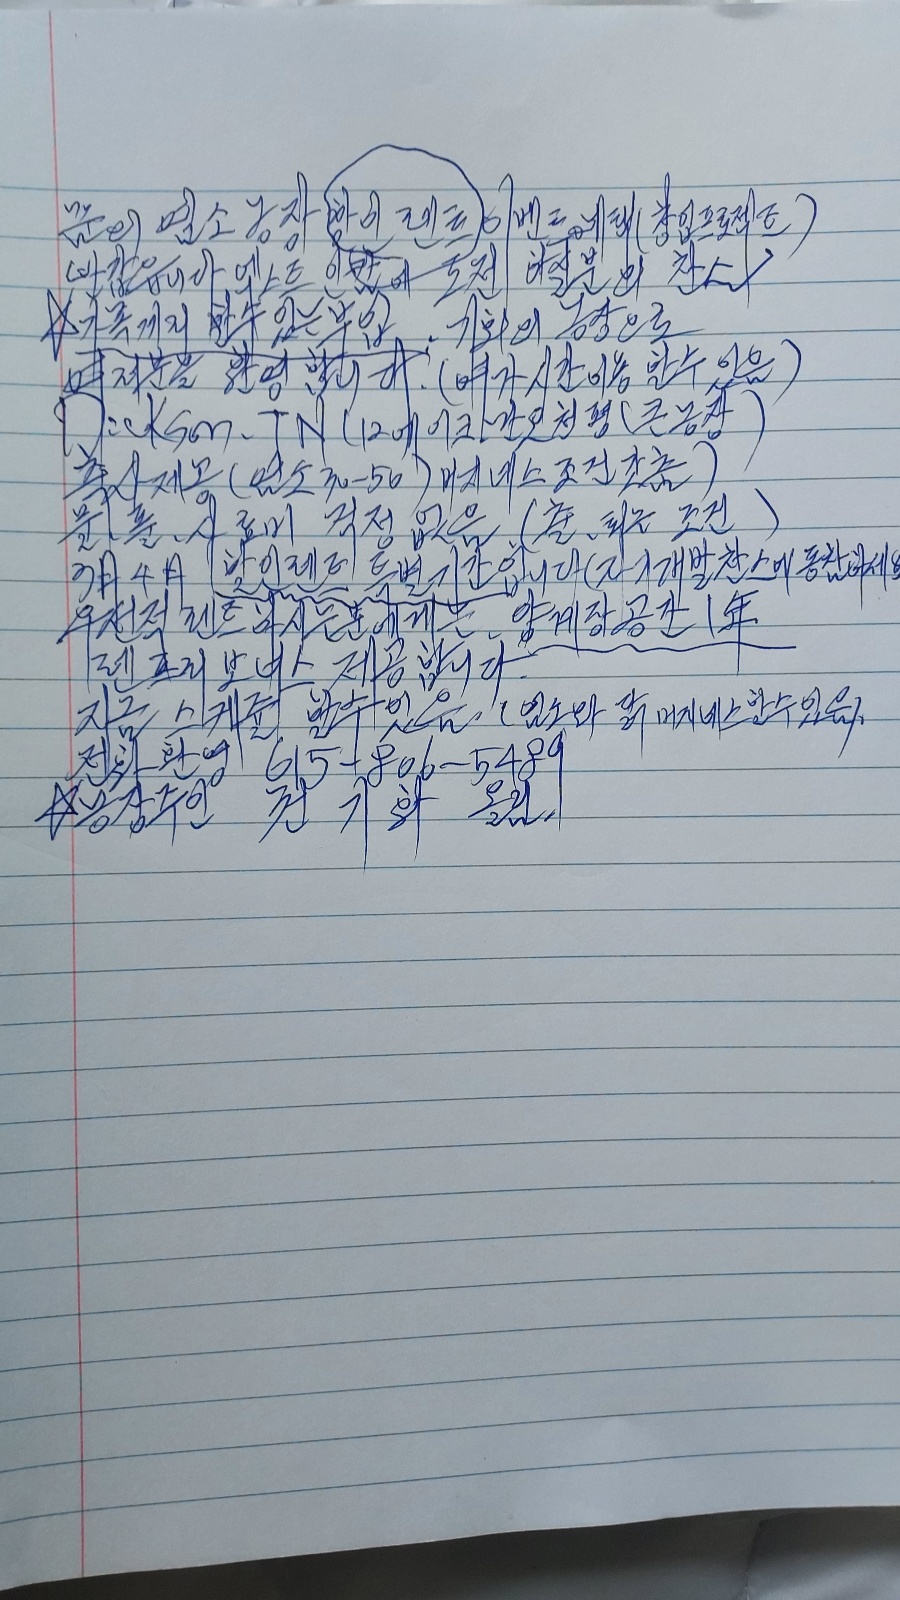 꿈의 염소농장 할인 렌트 이벤트 혜택 (창업프로젝트)
반갑습니다 텍스트 도전 여러분의 찬스
☆가족끼리 할수 있는 부업. 기회의 농장으로
여러분을 환영합니다. (여가시간 이용 할수 있음)
Dickson. TN (12에이커 - 만오천평 (큰농장)
축사제공 (염소 30-50) 비지네스 조건 갖춤)
물, 풀, 사료비 걱정 없음 (출, 퇴근 조건)
3月 4月 할인렌터 특별기간입니다 (자기개발 찬스에 동참하세요
우선적 렌트하시는분에게는. 양계장공간 1年
렌프리 보너스 제공합니다.
지금 스케쥴 할수있음. (염소와 닭 비지네스 할수있음).
전화 환영 615-806-5489
☆농장주인 전 기화 올림.